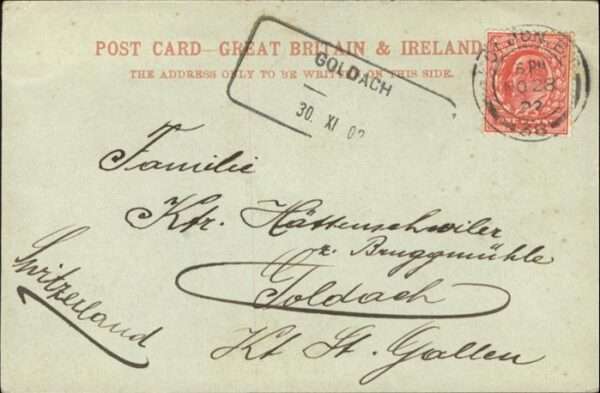 POST CARD—GREAT BRITAIN & IRELAND
THE ADDRESS ONLY TO BE WRITTEN ON THIS SIDE.
GOLDACH
30. XI 02
LONDON, E.C
6 PM
NO 28
02
Familie
Ktr. Hättenschwiler
z. Bruggmühle
Goldach
Kt St. Gallen
Switzerland